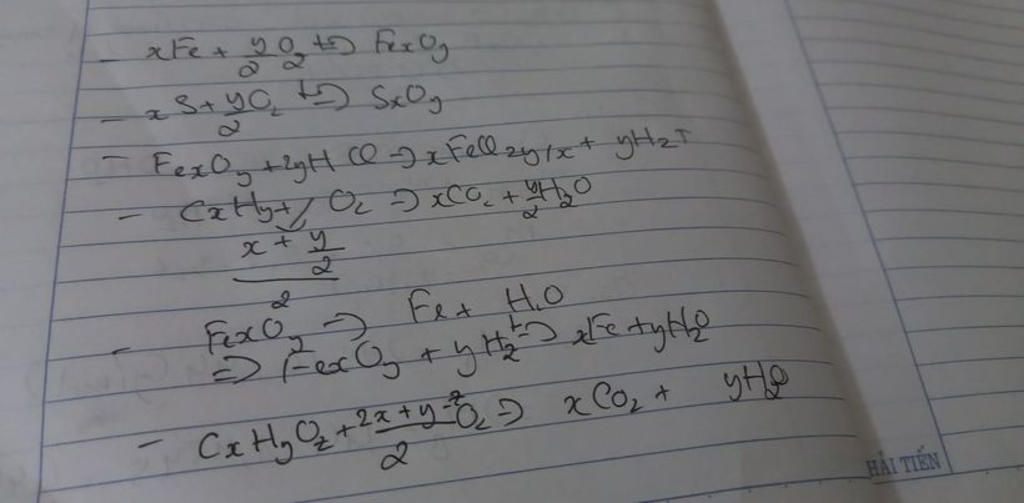 - xFe + y/2 O₂ t°⇒ FexOy
- x S + y/2 O₂ t°⇒ SxOy
- FexOy + 2yHCl ⇒ xFeCl2y/x + yH₂↑
- CxHy + O₂ ⇒ xCO₂ + y/2 H₂O
x + y/2
2
- FexOy ⇒ Fe + H₂O
⇒ FexOy + yH₂ t°⇒ xFe + yH₂O
- CxHyOz + 2x+y-z/2 O₂ ⇒ xCO₂ + yH₂O
HẢI TIẾN